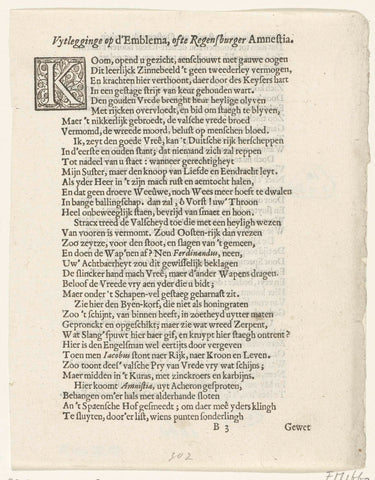 Uytlegginge op d'Emblema, ofte Regensburger Amnestia.
KOom, opend u gezicht, aenschouwt met gauwe oogen
Dit leerlijck Zinnebeeld 't geen tweederley vermogen,
En krachten hier verthoont, daer door des Keysers hart
In een gestage strijt van keur gehouden wart.
Den gouden Vrede brenght heur heylige olyven
Met rijcken overvloedt, en bid om staegh te blyven,
Maer 't nikkerlijk gebroedt, de valsche vrede broed
Vermomd, de wreede moord, belust op menschen bloed.
Ik, zeyt den goede Vreê; kan 't Duitsche rijk herscheppen
In d'eerste en ouden stant; dat niemand zich zal reppen
Tot nadeel van u staet: wanneer gerechtigheyt
Mijn Suster, maer den knoop van Liefde en Eendracht leyt.
Als yder Heer in 't zijn mach rust en aemtocht halen,
En dat geen droeve Weeûwe, noch Wees meer hoeft te dwalen
In bange ballingschap. dan zal, ô Vorst! uw' Throon
Heel onbeweeglijk staen, bevrijd van smaet en hoon.
Stracx treed de Valscheyd toe die met een heyligh wezen
Van vooren is vermomt. Zoud Oosten-rijk dan vrezen
Zoo zeytze, voor den stoot, en slagen van 't gemeen,
En doen de Wap'nen af? Nen Ferdinandus, neen,
Uw' Achtbaerheyt zou dit gewisselijk beklagen
De slincker hand mach Vreê, maer d'ander Wapens dragen.
Beloof de Vreede vry aen yder die u bidt;
Maer onder 't Schapen-vel gestaeg geharnast zit.
Zie hier den Byen-korf, die niet als honingraten
Zoo 't schijnt, van binnen heeft, in zoetheyd uytter maten
Gepronckt en opgeschikt; maer zie wat wreed Zerpent,
Wat Slang' spuwt hier haer gif, en kruypt hier staegh ontrent?
Hier is den Engelsman wel eertijts door vergeven
Toen men Iacobus stont naer Rijk, naer Kroon en Leven.
Zoo toont deef' valsche Pry van Vrede vry wat schijns;
Maer midden in 't Kuras, met zinckroers en karbijns.
Hier koomt Amnistia, uyt Acheron gesproten,
Behangen om'er hals met alderhande sloten
An 't Spaensche Hof gesmeedt; om daer meê yders klingh
Te sluyten, door'er list, wiens punten sonderlingh
B 3 Gewet
302